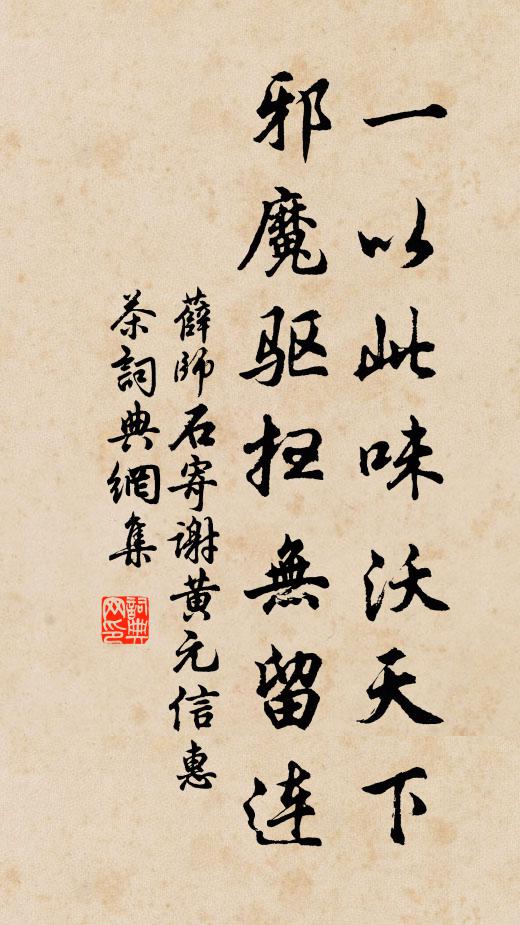 一以此味沃天下
邪魔驱扫無留连
薛師石寄谢黄元信惠
茶詞典網集
詞典网印